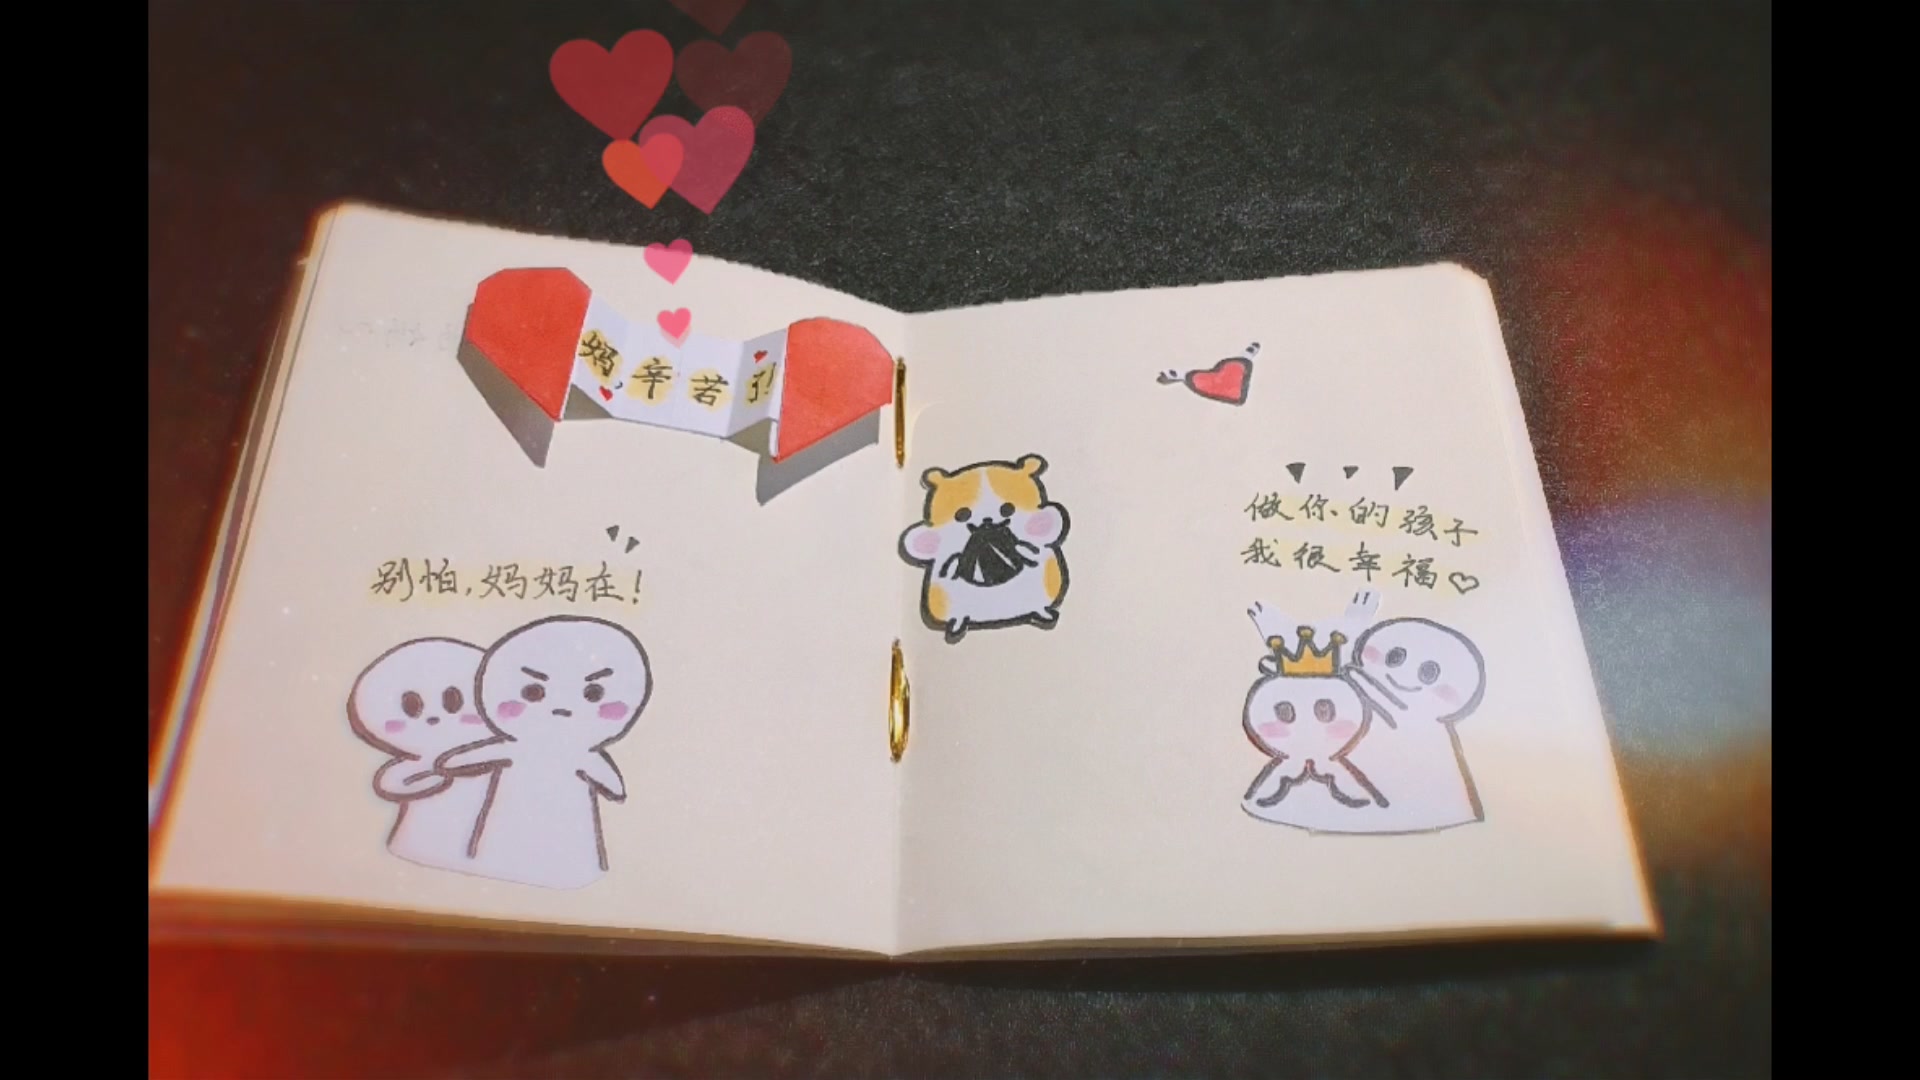 妈,辛苦了!
别怕,妈妈在!
做你的孩子
我很幸福